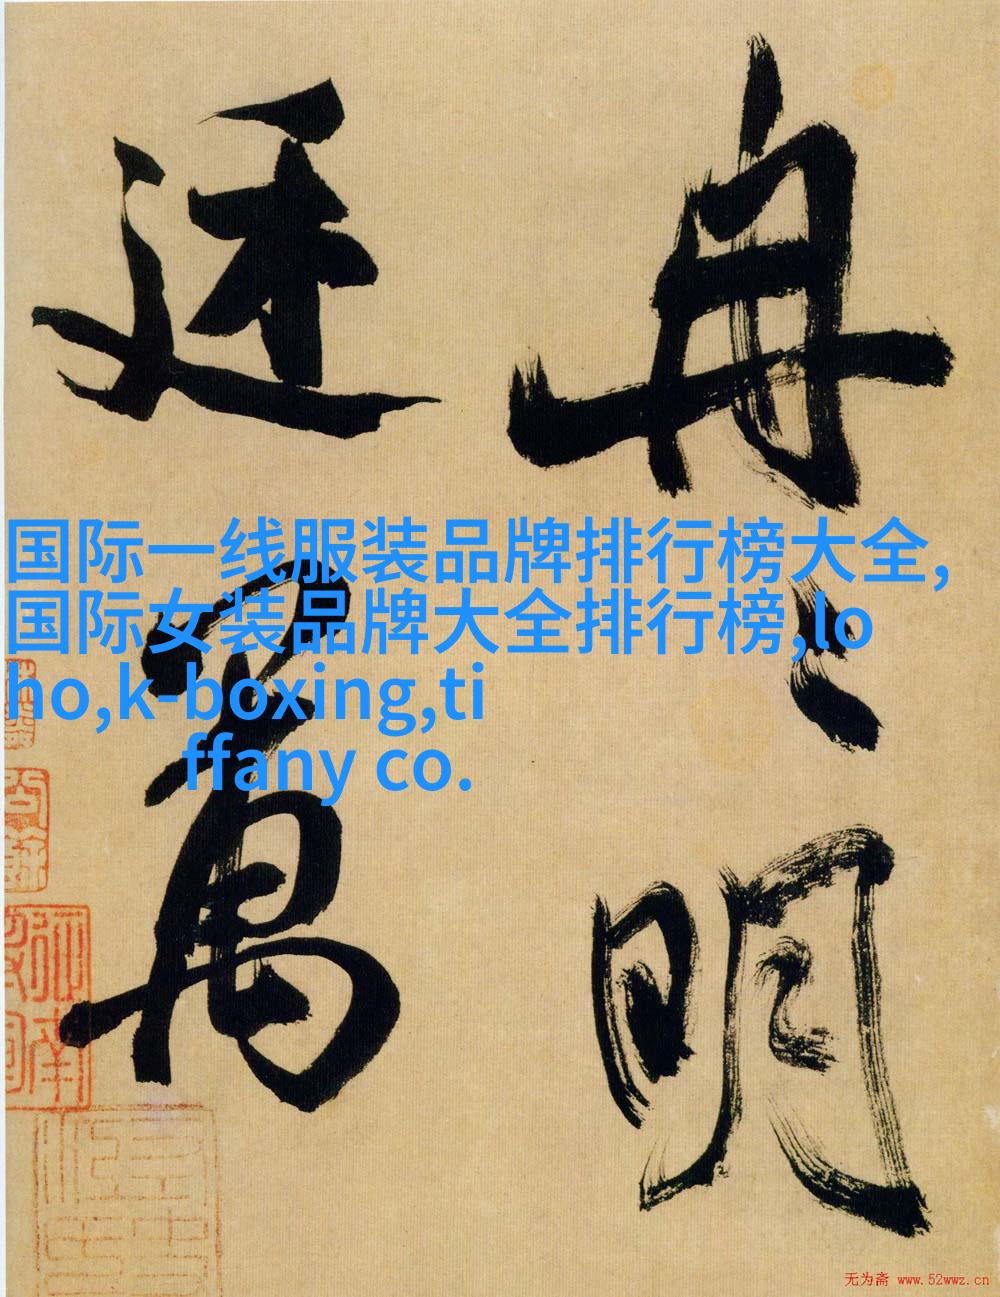 冉〻明
廷萬
国际一线服装品牌排行榜大全,
国际女装品牌大全排行榜,lo
ho,k-boxing,ti
ffany co.
无为斋 www.52wwz.cn